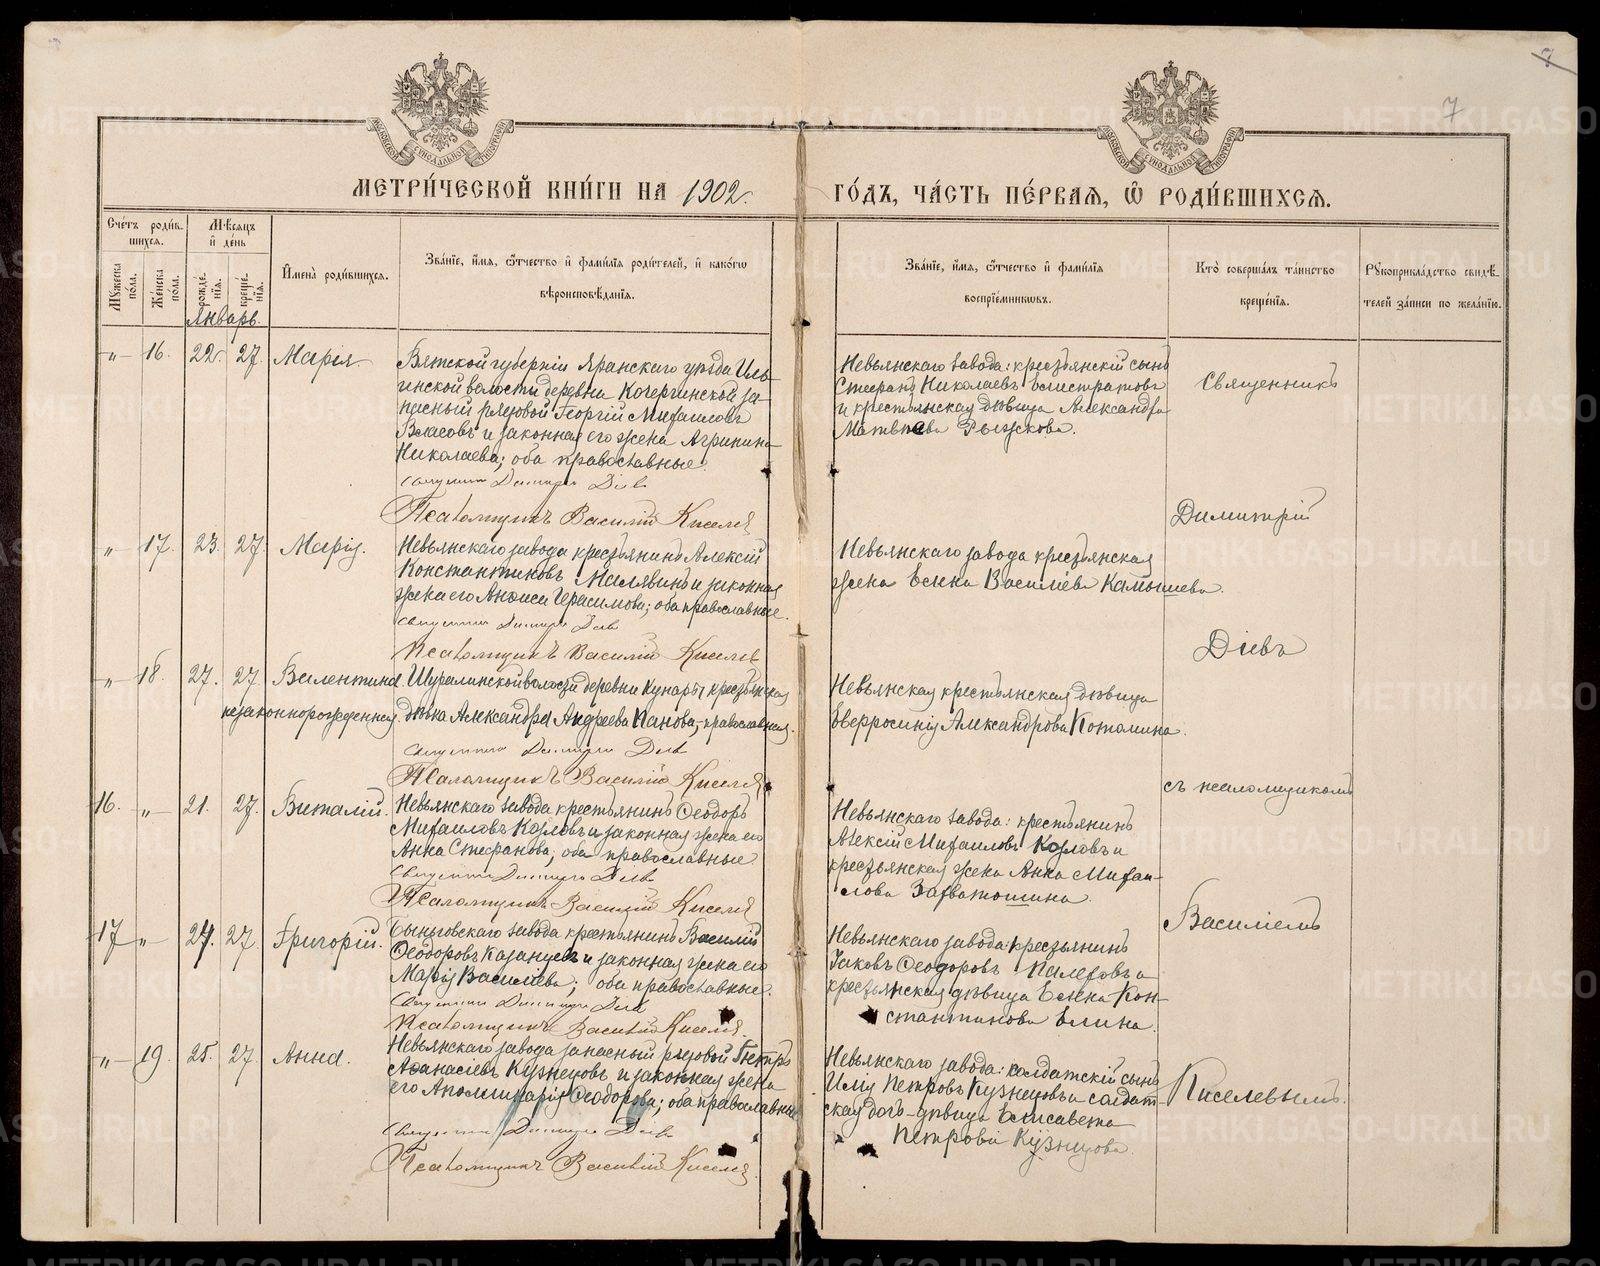 7
7
МЕТРИ́ЧЕСКОЙ КНИ́ГИ НА 1902 г. ГО́ДЪ, ЧА́СТЬ ПЕ́РВАЯ, Ѽ РОДИ́ВШИХСѦ.
Сче́тъ роди́в-
шихся.
Мꙋ́жеска по́ла.
Же́нска по́ла.
Мѣ́сяцъ и҆ де́нь
рожде́нїя.
креще́нїя.
И҆мена̀ роди́вшихся.
Зва́нїе, и҆́мя, ѻ҆́тчество и҆ фами́лїя роди́телей, и҆ како́гѡ
вѣроисповѣ́данїя.
Зва́нїе, и҆́мя, ѻ҆́тчество и҆ фами́лїя
воспрїе́мникѡвъ.
Кто̀ соверша́лъ та́инство
креще́нїя.
Рꙋкоприкла́дство свидѣ́-
телей за́писи по жела́нїю.
Январь.
"— 16. 22. 27. Марія.
Вятской губерніи Яранскаго уѣзда Иль-
инской волости деревни Кочергинской за-
пасный рядовой Георгій Михаиловъ
Власовъ и законная его жена Агрипина
Николаева; оба православные.
Священникъ Димитрій Діевъ
Псаломщикъ Василій Киселевъ
Невьянскаго завода: крестьянскій сынъ
Стефанъ Николаевъ Елистратовъ
и крестьянская дѣвица Александра
Матвѣева Рыжкова.
Священникъ
Димитрій
"— 17. 23. 27. Марія.
Невьянскаго завода крестьянинъ Алексій
Константиновъ Малявинъ и законная
жена его Анѳиса Герасимова; оба православные.
Священникъ Димитрій Діевъ
Псаломщикъ Василій Киселевъ
Невьянскаго завода крестьянская
жена Елена Васильева Камышева.
Діевъ
"— 18. 27. 27. Валентина
незаконнорожденная
Шуралинской волости деревни Кунары крестьянская
дѣвка Александра Андреева Панова, православная.
Священникъ Димитрій Діевъ
Псаломщикъ Василій Киселевъ
Невьянская крестьянская дѣвица
Евфросинія Александрова Потапина.
съ псаломщикомъ
16. "— 21. 27. Виталій.
Невьянскаго завода крестьянинъ Ѳеодоръ
Михаиловъ Козловъ и законная жена его
Анна Стефанова; оба православные
Священникъ Димитрій Діевъ
Псаломщикъ Василій Киселевъ
Невьянскаго завода: крестьянинъ
Алексій Михаиловъ Козловъ и
крестьянская жена Анна Михаи-
лова Захватошина.
Василіемъ
17 "— 24. 27. Григорій.
Быньговскаго завода крестьянинъ Василій
Ѳеодоровъ Казанцевъ и законная жена его
Марія Васильева; оба православные.
Священникъ Димитрій Діевъ
Псаломщикъ Василій Киселевъ.
Невьянскаго завода: крестьянинъ
Іаковъ Ѳеодоровъ Палеховъ и
крестьянская дѣвица Елена Кон-
стантинова Елина.
"— 19. 25. 27. Анна.
Невьянскаго завода запасный рядовой Петръ
Аѳанасіевъ Кузнецовъ и законная жена
его Аполлинарія Ѳеодорова; оба православные
Священникъ Димитрій Діевъ
Псаломщикъ Василій Киселевъ.
Невьянскаго завода: солдатскій сынъ
Илія Петровъ Кузнецовъ и солдат-
ская дочь-дѣвица Елисавета
Петрова Кузнецова.
Киселевымъ.
METRIKI.GASO-URAL.RU